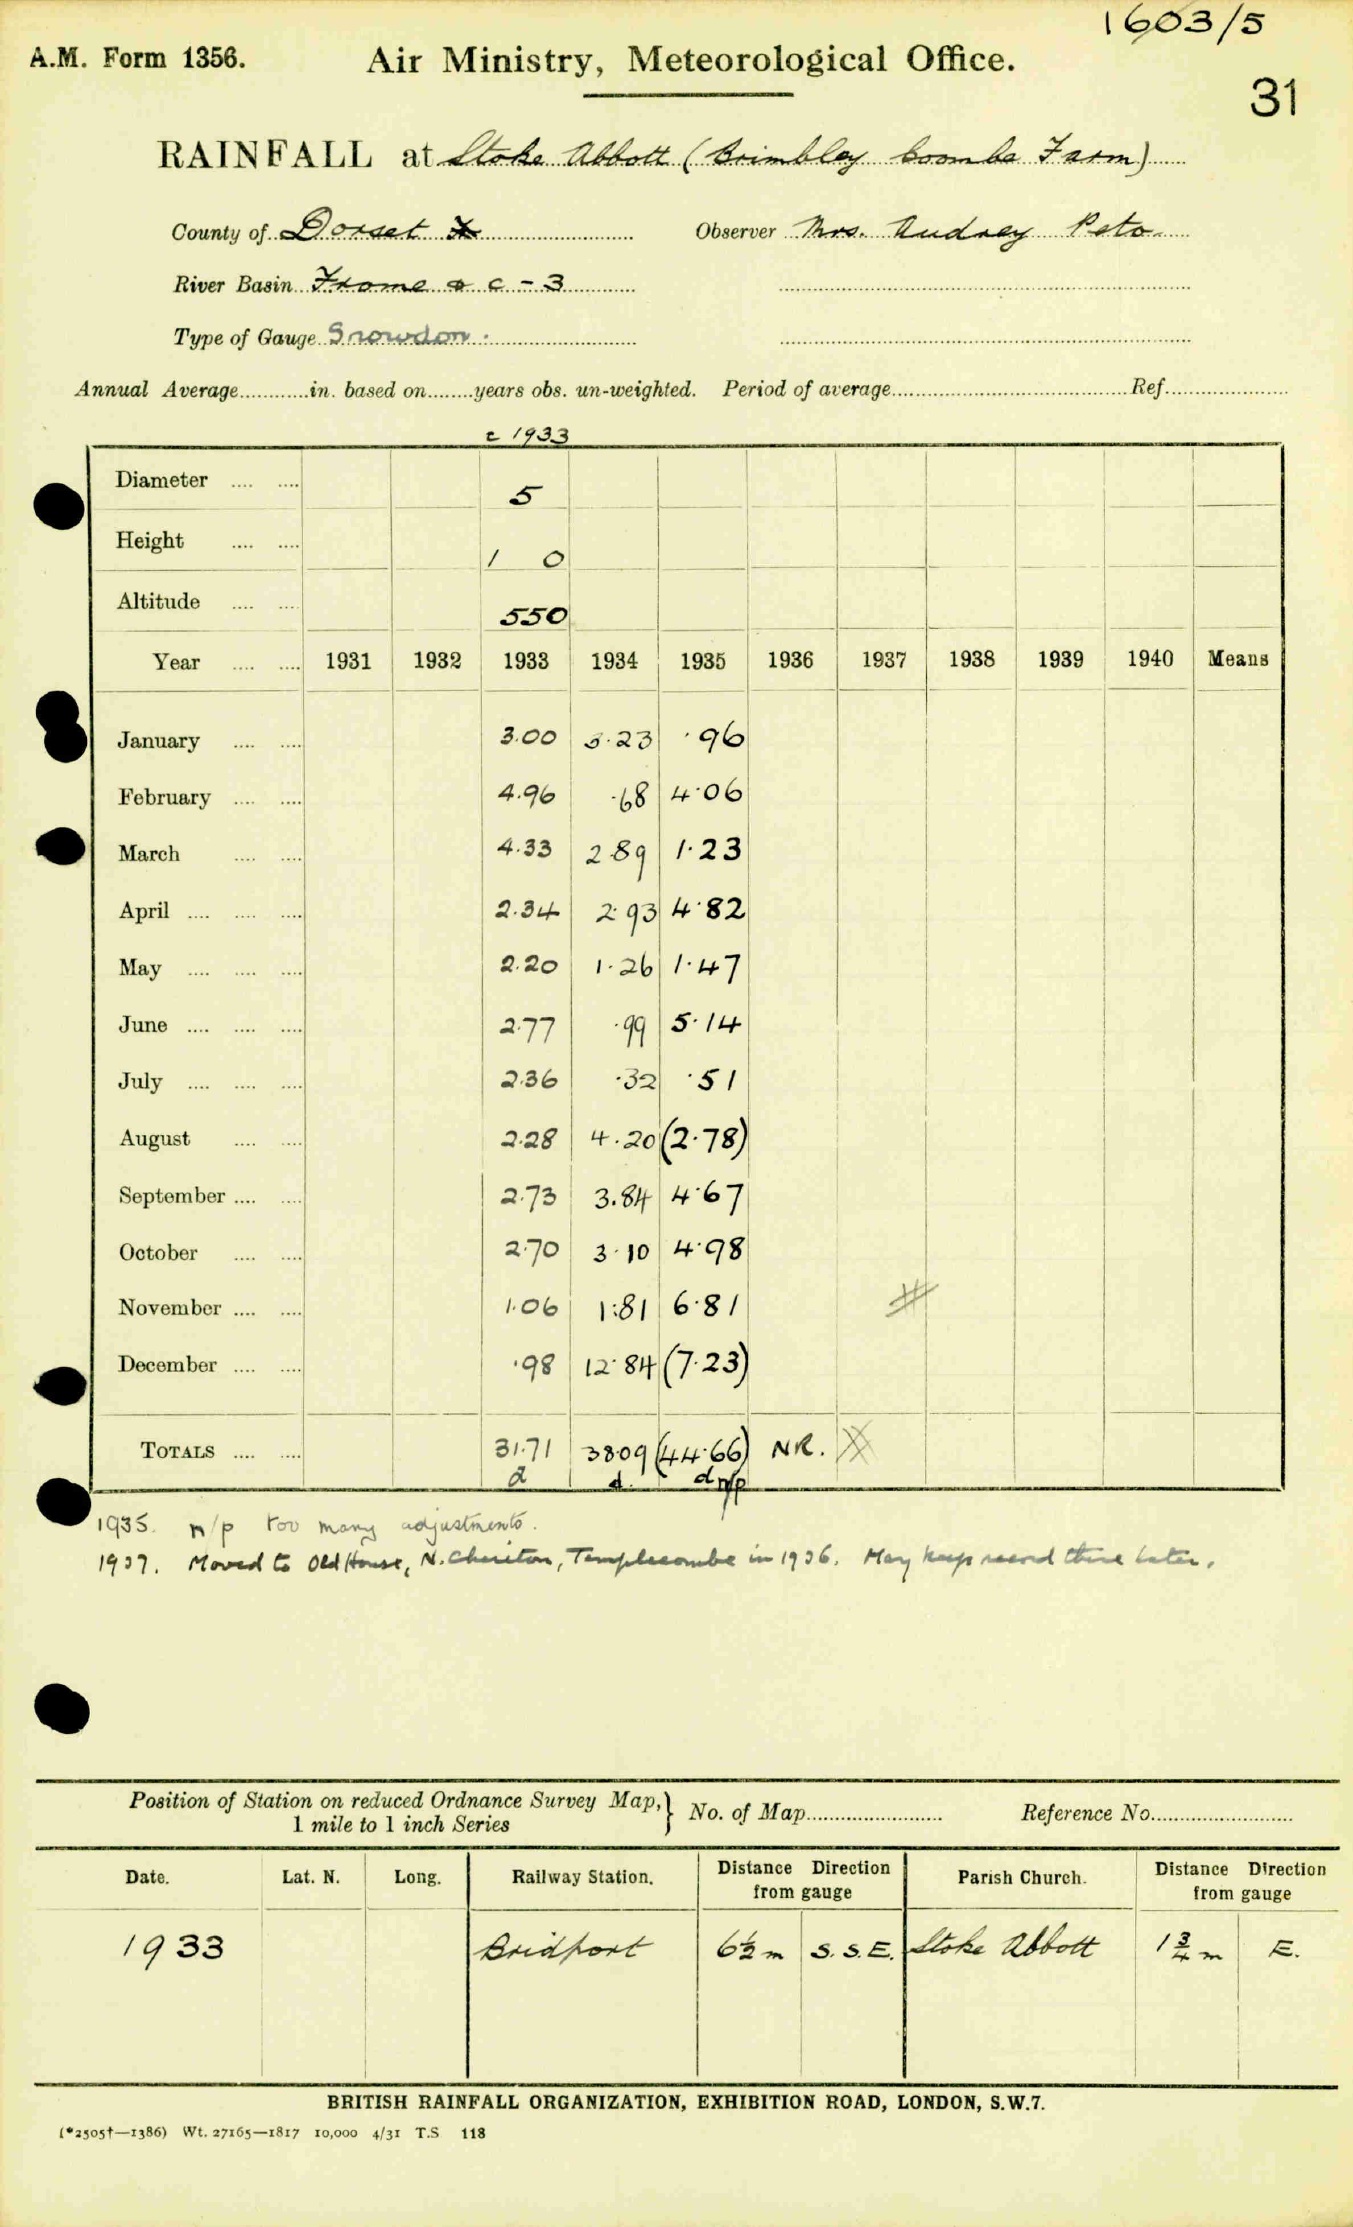 1603/5
A.M. Form 1356. Air Ministry, Meteorological Office.
31
RAINFALL at Stoke Abbott (Brimbley Coombe Farm)
County of Dorset Observer Mrs. Audrey Peto.
River Basin Frome & c - 3
Type of Gauge Snowdon.
Annual Average............in. based on........years obs. un-weighted. Period of average........ Ref........
1933
Diameter .... .... 5
Height .... .... 1 0
Altitude .... .... 550
Year .... .... 1931 1932 1933 1934 1935 1936 1937 1938 1939 1940 Means
January .... .... 3.00 3.23 .96
February .... .... 4.96 .68 4.06
March .... .... 4.33 2.89 1.23
April .... .... .... 2.34 2.93 4.82
May .... .... .... 2.20 1.26 1.47
June .... .... .... 2.77 .99 5.14
July .... .... .... 2.36 .32 .51
August .... .... 2.28 4.20 (2.78)
September .... .... 2.73 3.84 4.67
October .... .... 2.70 3.10 4.98
November .... .... 1.06 1.81 6.81
December .... .... .98 12.84 (7.23)
TOTALS .... .... 31.71 38.09 (44.66) NR.
d d. d n/p
1935. n/p too many adjustments.
1937. Moved to Old House, N. Cheriton, Templecombe in 1936. May keep record there later.
Position of Station on reduced Ordnance Survey Map,} No. of Map........ Reference No........
1 mile to 1 inch Series
Date. Lat. N. Long. Railway Station. Distance Direction from gauge Parish Church. Distance Direction from gauge
1933 Bridport 6½ m S.S.E. Stoke Abbott 1¾ m E.
BRITISH RAINFALL ORGANIZATION, EXHIBITION ROAD, LONDON, S.W.7.
(*2505†—1386) Wt. 27165—1817 10,000 4/31 T.S 118